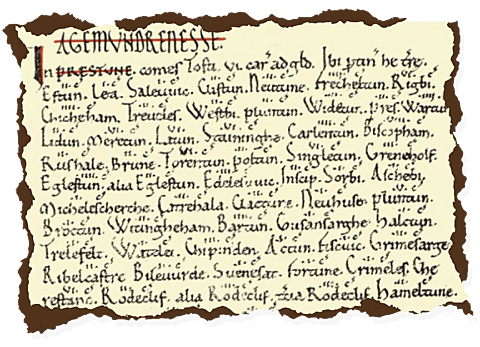 AGEMVNDRENESSE.
In PRESTVNE. comes Tosti. vi. car' ad gld. Ibi ptin' he tre.
Estun. Lea. Saleuuic. Cliftun. Neutune. Frecheltun. Rigbi.
Chicheham. Treueles. Westbi. pluntun. Widetun. pres. Wartun
Lidun. Meretun. Latun. Staininghe. Carlentun. Biscopham.
Rushale. Brune. Torentun. poltun. Singletun. Greneholf.
Eglestun. alia Eglestun. Edeleſuuic. Inscip. Sorbi. Aschebi,
Michelescherche. Catrehala. Clactune. Neuhuse. pluntun.
Broctun. Witingheham. Bartun. Gusansarghe. halctun.
Trelefelt. Watelei. Chipinden. Actun. Fiscuic. Grimesarge
Ribelcastre. Bileuurde. Suenesat. fortune. Crimeles. Che
restanc. Rodeclif. alia Rodeclif. tcia Rodeclif. hameltune.